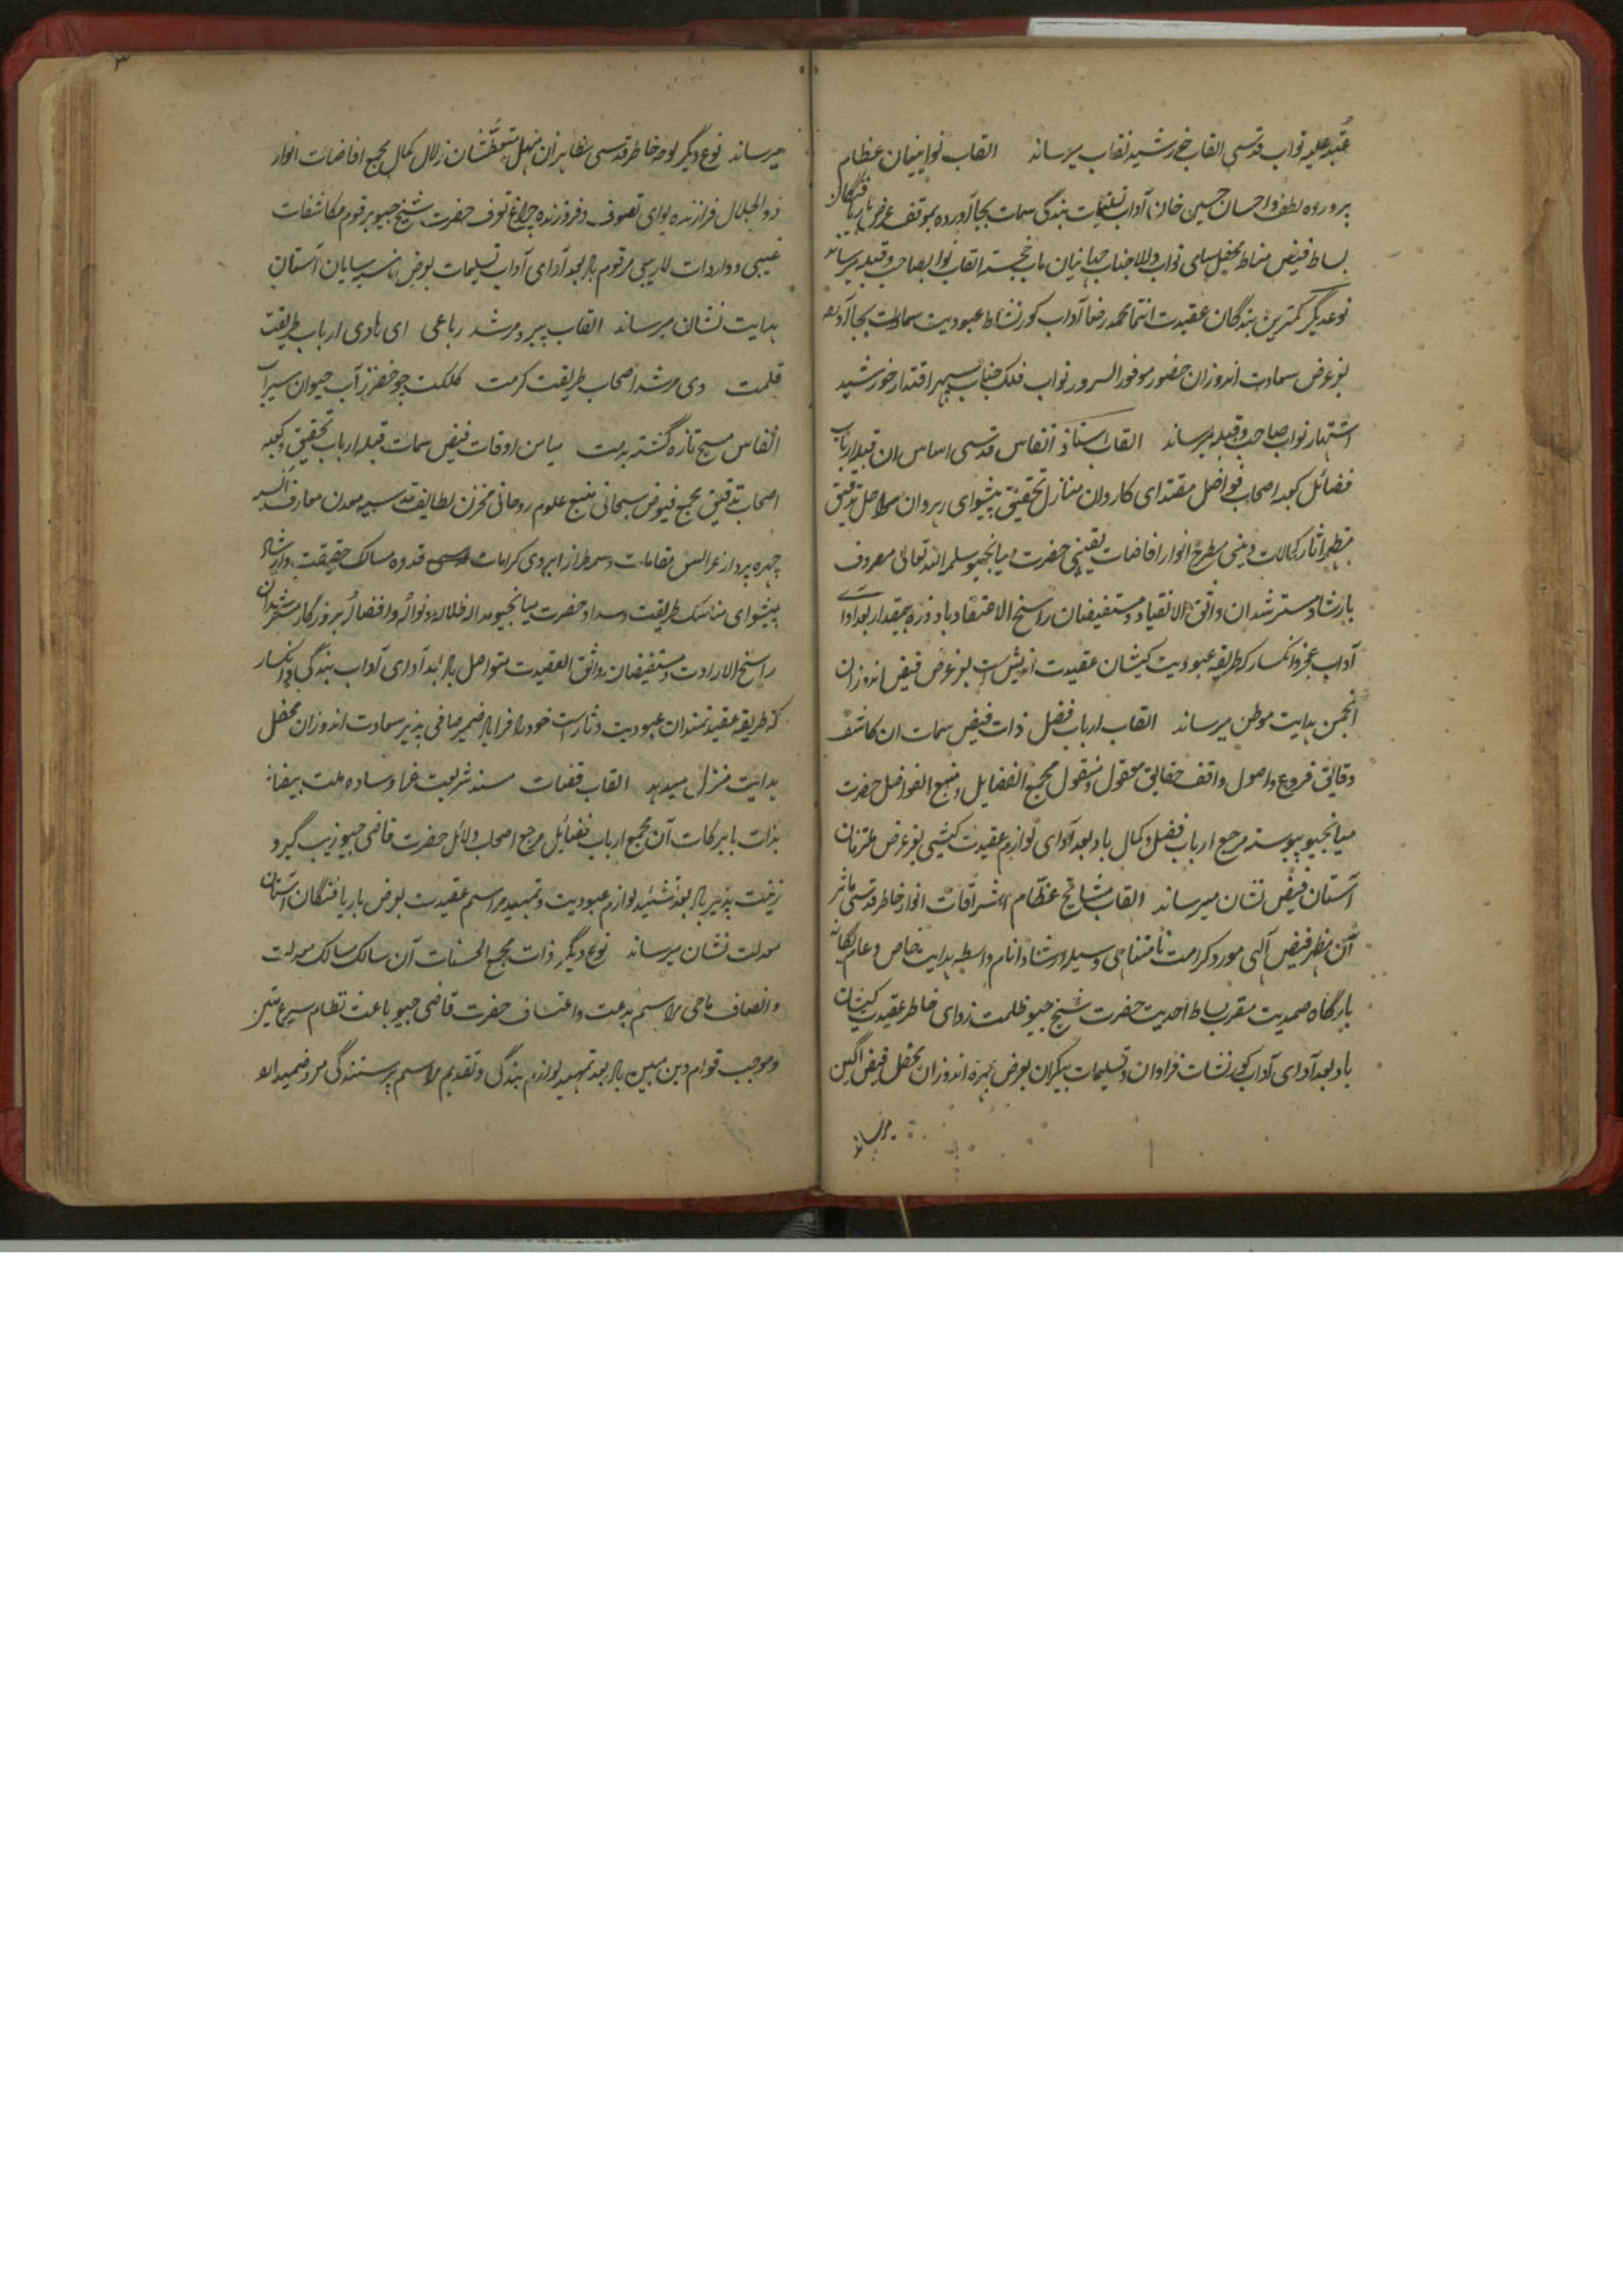 عتبه علیه نواب قدسی القاب خورشید نقاب میرساند القاب نوابینان عظام
پرورده لطف و احسان حسین خان آداب تسلیمات بندگی سمات بجا آورده بموقف عرض باریافتگان
بساط فیض مناط محفل سامی نواب والاجناب خجسته القاب نوابصاحب و قبله میرساند
نوعدیگر کمترین بندگان عقیدت انتما محمد رضا آداب کورنشاط عبودیت سمات بجا آورده
بعرض سعادت اندوزان حضور موفور السرور نواب فلک جناب سپهر اقتدار خورشید
اشتهار نواب صاحب و قبله میرساند القاب استاد انفاس قدسی اساس ان قبله ارباب
فضائل کعبه اصحاب فواضل مقتدای کاروان منازل تحقیق پیشوای رهروان مراحل تدقیق
مظهر اثار کمالات دینی مطرح انوار افاضات یقینی حضرت میانجیو سلمه الله تعالی مصروف
بارشاد مسترشدان واثق الانقیاد و مستفیضان راسخ الاعتقاد باد ذره بیمقدار بعد ادای
آداب عجز و انکسار که طریقه عبودیت کیشان عقیدت اندیش است بعرض فیض اندوزان
انجمن هدایت موطن میرساند القاب ارباب فضل ذات فیض سمات ان کاشف
دقائق فروع و اصول واقف حقایق معقول و منقول مجمع الفضایل و منبع الفواضل حضرت
میانجیو پیوسته مرجع ارباب فضل و کمال باد بعد ادای لوازم عقیدت کیشی بعرض ملتزمان
آستان فیض نشان میرساند القاب مشائخ عظام اشراقات انوار خاطر قدسی ماثر
آن مظهر فیض آلهی مورد کرامت نامتناهی وسیله ارشاد انام واسطه هدایت خاص و عام یگانه
بارگاه صمدیت مقرب بساط احدیت حضرت شیخ جیو ظلمت زدای خاطر عقیدت کیشان
باد بعد آدای آداب کورنشات فراوان و تسلیمات بیکران بعرض بهره اندوزان محفل فیض اگین
میرساند
۳
میرساند نوع دیگر لوحه خاطر قدسی مظاهر ان منهل متعطشان زلال کمال مجمع افاضات انوار
ذوالجلال فرازنده لوای تصوف و فروزنده چراغ تعرف حضرت شیخ جیو برقوم مکاشفات
غیبی و واردات لاریبی مرقوم باد بعد آدای آداب تسلیمات بعرض ناصیه سایان آستان
هدایت نشان میرساند القاب پیر و مرشد رباعی ای هادی ارباب طریقت
قلمت وی مرشد اصحاب طریقت کرمت کلکت چو خضر ز آب حیوان سیراب
انفاس مسیح تازه گشته بدمت میامن اوقات فیض سمات قبله ارباب تحقیق و کعبه
اصحاب تدقیق مجمع فیوض سبحانی منبع علوم روحانی مخزن لطایف قدسیه معدن معارف انسیه
چهره پرداز عرائس مقامات وسمه طراز ابروی کرامات قدوه مسالک حقیقت و ارشاد
پیشوای مناسک طریقت و سداد حضرت میانجیو مد الله ظلاله و نواله و افضاله بروزگار مسترشدان
راسخ الارادت و مستفیضان واثق العقیدت متواصل باد بعد آدای آداب بندگی و انکسار
که طریقه عقیدتمندان عبودیت دثار است خود را فرا یاد ضمیر صافی پذیر سعادت اندوزان محفل
هدایت منزل میدهد القاب قضات مسند شریعت غرا و ساده ملت بیضا
بذات بابرکات آن مجمع ارباب فضائل مرجع اصحاب دلائل حضرت قاضی جیو زیب گیر و
زینت پذیر باد بعد تشئید لوازم عبودیت و تمهید مراسم عقیدت بعرض باریافتگان آستان
معدلت نشان میرساند نوع دیگر ذات مجمع الحسنات آن سالک مسالک معدلت
و انصاف ماحی مراسم بدعت و اعتساف حضرت قاضی جیو باعث نظام شرع متین
و موجب قوام دین مبین باد بعد تمهید لوازم بندگی و تقدیم مراسم پرستندگی معروض میدارد